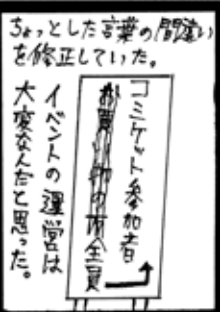 ちょっとした言葉の間違い
を修正していた。
コミケット参加者
お買い物の方全員
イベントの運営は
大変なんだと思った。